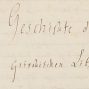 Geschichte d
Griechischen Lit